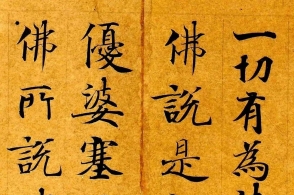 一切有為
佛說是
優婆塞
佛所說